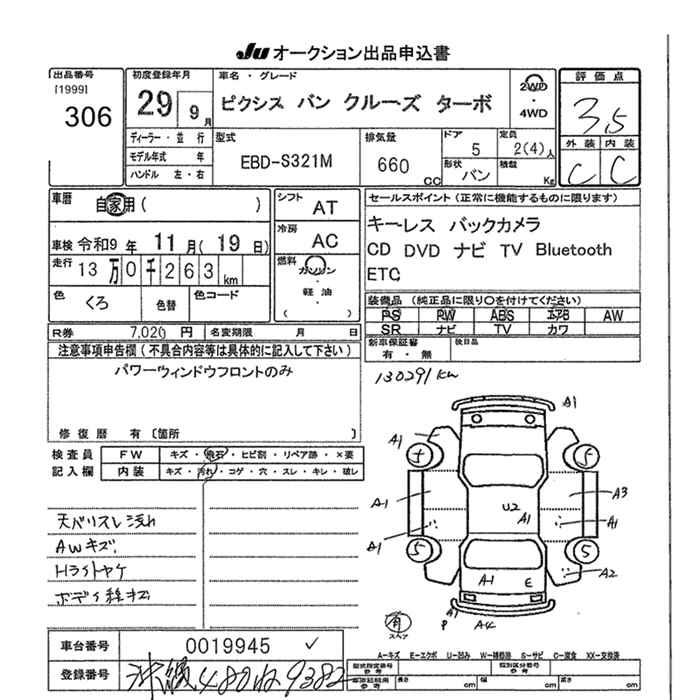 JU オークション出品申込書
出品番号
[1999]
306
初度登録年月
29 9月
車名・グレード
ピクシス バン クルーズ ターボ
2WD
・
4WD
評価点
3.5
外装 内装
C C
ディーラー・並行
モデル年式 年
ハンドル 左・右
型式
EBD-S321M
排気量
660 CC
ドア
5
定員
2(4)人
形状
バン
積載
Kg
車歴
自家用( )
車検 令和9年 11月(19日)
走行 13万0千263km
色
くろ
色替
色コード
シフト
AT
冷房
AC
燃料
ガソリン
・
軽油
・
( )
セールスポイント(正常に機能するものに限ります)
キーレス バックカメラ
CD DVD ナビ TV Bluetooth
ETC
装備品(純正品に限り○を付けてください)
PS PW ABS エアB AW
SR ナビ TV カワ
R券 7,020円 名変期限 月 日
新車保証書
有・無
後日品
注意事項申告欄(不具合内容等は具体的に記入して下さい)
パワーウィンドウフロントのみ
修復歴 有〔箇所 〕
130291km
検査員
記入欄
FW キズ・飛石・ヒビ割・リペア跡・×要
内装 キズ・汚れ・コゲ・穴・スレ・キレ・破レ
AWキズ
Hライトヤケ
A1
A1
5 5
A-1 A3
U2
A1 A1
A1
5 5
A-1 E
A2
A1
P A4
有
スペア
A-キズ E-エクボ U-凹み W-補修跡 S-サビ C-腐食 XX-交換済
車台番号 0019945 ✓
登録番号 沖縄480ね9382
型式指定番号
参考
類別区分番号
参考
長さ cm 幅 cm 高さ cm